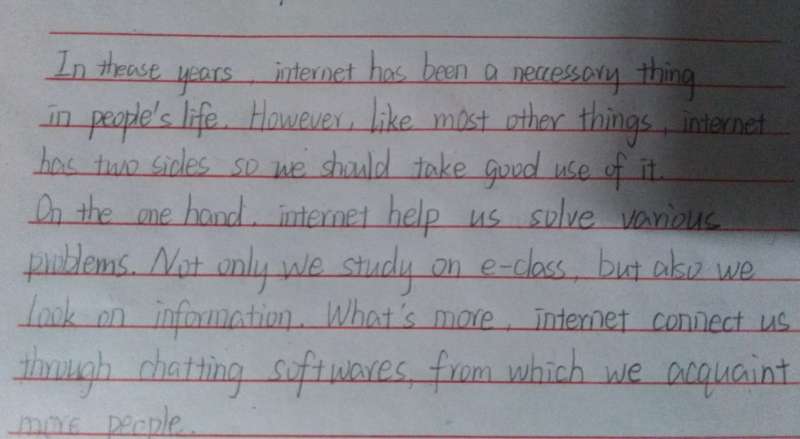 In thease years, internet has been a necessary thing
in people's life. However, like most other things, internet
has two sides so we should take good use of it.
On the one hand, internet help us solve various
problems. Not only we study on e-class, but also we
look on information. What's more, internet connect us
through chatting softwares, from which we acquaint
more people.